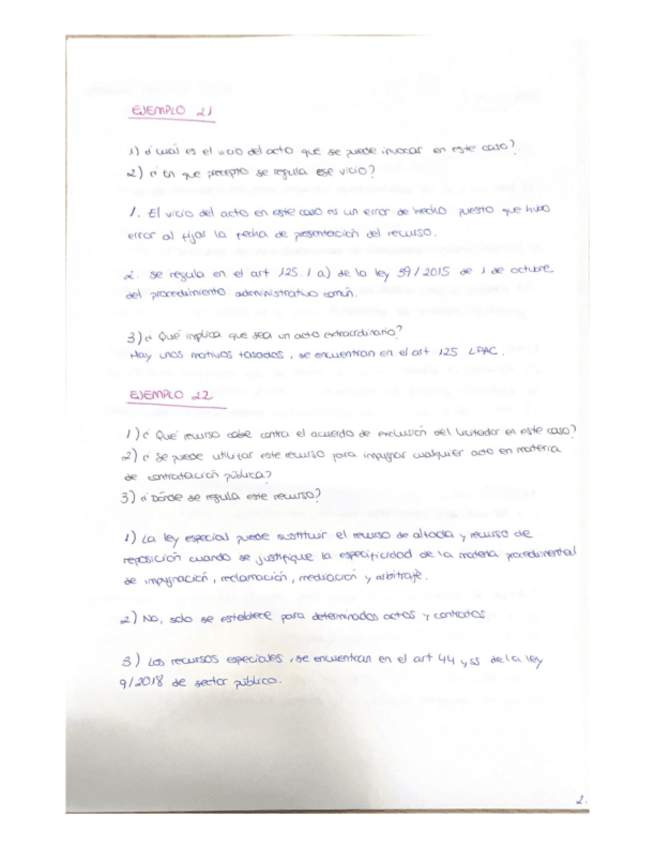 EJEMPLO 21
1) ¿Cuál es el vicio del acto que se puede invocar en este caso?
2) ¿En que precepto se regula ese vicio?
1. El vicio del acto en este caso es un error de hecho puesto que hubo
error al fijar la fecha de presentación del recurso.
2. Se regula en el art 125.1 a) de la ley 39/2015 de 1 de octubre
del procedimiento administrativo común.
3) ¿Qué implica que sea un acto extraordinario?
Hay unos motivos tasados, se encuentran en el art 125 LPAC.
EJEMPLO 22
1) ¿Qué recurso cabe contra el acuerdo de exclusión del licitador en este caso?
2) ¿Se puede utilizar este recurso para impugnar cualquier acto en materia
de contratación pública?
3) ¿Dónde se regula este recurso?
1) La ley especial puede sustituir el recurso de alzada y recurso de
reposición cuando se justifique la especificidad de la materia procedimental
de impugnación, reclamación, mediación y arbitraje.
2) No, solo se establece para determinados actos y contratos
3) Los recursos especiales, se encuentran en el art 44 y ss de la ley
9/2018 de sector público.
2.